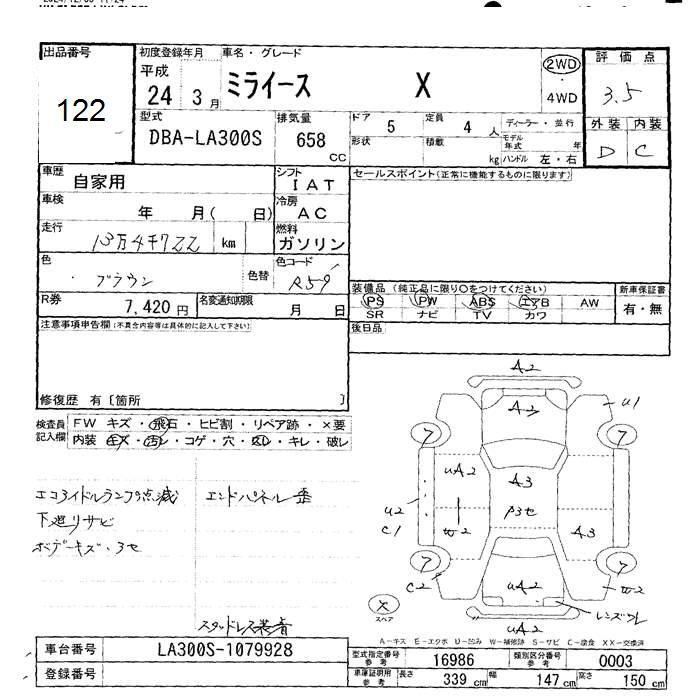 出品番号
122
初度登録年月
平成
24 3月
車名・グレード
ミライース X
2WD
4WD
評価点
3.5
外装 内装
D C
型式
DBA-LA300S
排気量
658
CC
ドア
5
定員
4 人
形状
積載
kg
ディーラー・並行
モデル年式 年
ハンドル 左・右
車歴
自家用
シフト
IAT
車検
年 月( 日)
冷房
AC
走行
13万4千722 km
燃料
ガソリン
色
ブラウン
色替
色コード
R59
R券
7,420円
名変通知期限
月 日
セールスポイント(正常に機能するものに限ります)
装備品 (純正品に限り○をつけてください)
PS PW ABS エアB AW
SR ナビ TV カワ
新車保証書
有・無
後日品
注意事項申告欄(不具合内容等は具体的に記入して下さい)
修復歴 有〔箇所 〕
検査員記入欄
FW キズ・飛石・ヒビ割・リペア跡・×要
内装 キズ・汚レ・コゲ・穴・スレ・キレ・破レ
エコアイドルランプ点滅
下廻りサビ
ボデーキズ・ヨセ
エンドパネル歪
スタッドレス装着
A2
A2
U1
7
7
UA2
A3
U2
C1
W2
A3
7
7
C2
UA2
W2
レンズワレ
UA2
×
スペア
A-キズ E-エクボ U-凹み W-補修跡 S-サビ C-腐食 XX-交換済
車台番号
LA300S-1079928
登録番号
型式指定番号
参考
16986
類別区分番号
参考
0003
車庫証明用
参考
長さ
339 cm
幅
147 cm
高さ
150 cm